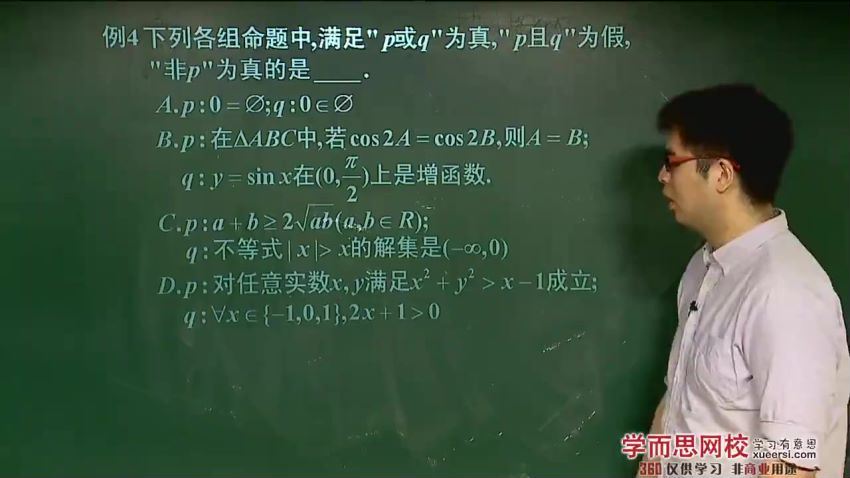 例4 下列各组命题中,满足"p或q"为真,"p且q"为假,
"非p"为真的是____.
A.p:0=∅;q:0∈∅
B.p:在ΔABC中,若cos2A=cos2B,则A=B;
q:y=sinx在(0,π/2)上是增函数.
C.p:a+b≥2√ab(a,b∈R);
q:不等式|x|>x的解集是(-∞,0)
D.p:对任意实数x,y满足x²+y²>x-1成立;
q:∀x∈{-1,0,1},2x+1>0
学而思网校 学习有意思
xueersi.com
360 仅供学习 非商业用途